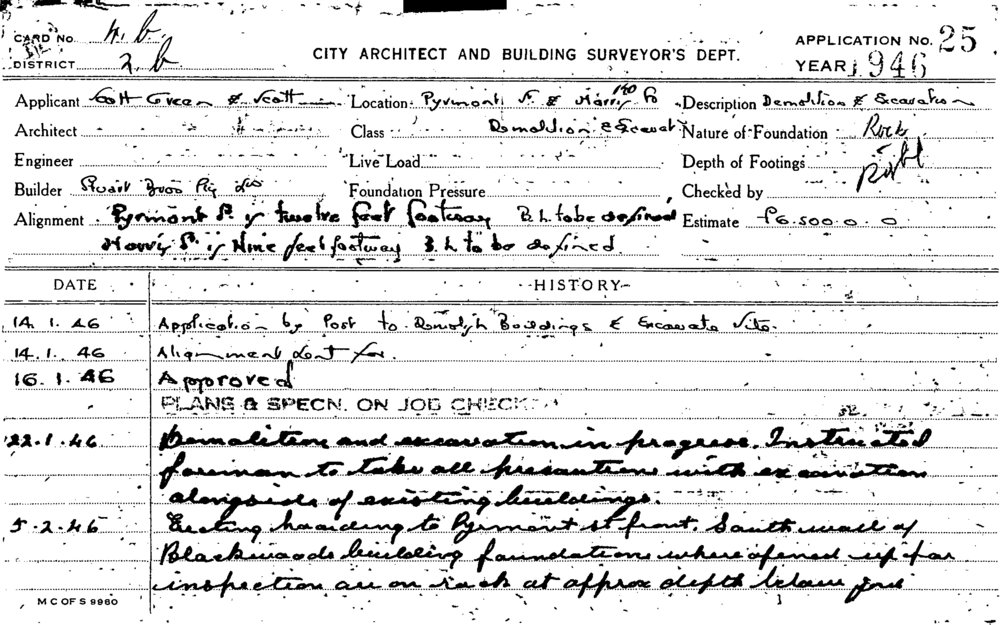 CARD No. 4.b.
DISTRICT 2.b
CITY ARCHITECT AND BUILDING SURVEYOR'S DEPT.
APPLICATION No. 25
YEAR 1946
Applicant Scott Green & Scott Location: Pyrmont St & Harris St Description Demolition & Excavation
Architect Class Demolition & Excavat Nature of Foundation Rock
Engineer Live Load Depth of Footings
Builder Stuart Bros Pty Ltd Foundation Pressure Checked by
Alignment Pyrmont St is twelve feet footway B.L. to be defined Estimate £6.500.0.0
Harris St is Nine feet footway B.L to be defined
DATE HISTORY
14.1.46 Application by Post to Demolish Buildings & Excavate Site.
14.1.46 Alignment Sent for.
16.1.46 Approved
PLANS & SPECN. ON JOB CHECK
22.1.46 Demolition and excavation in progress. Instructed
foreman to take all precautions with excavation
alongside of existing buildings.
5.2.46 Erecting hoarding to Pyrmont st front. South wall of
Blackwoods building foundations where opened up for
inspection are on rock at approx depth below
M C OF S 9960